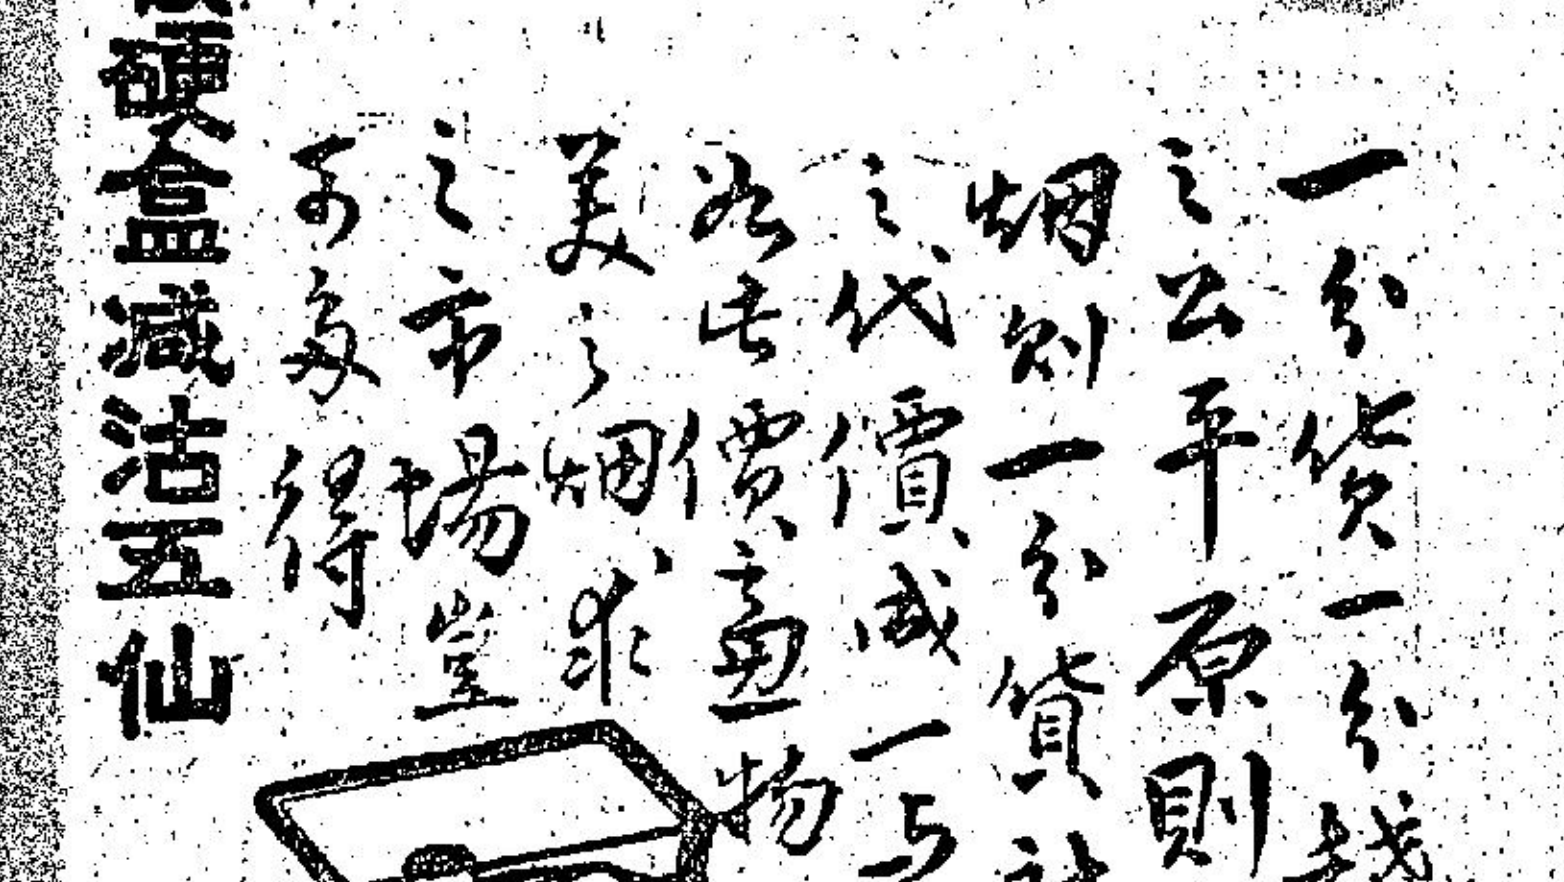 一分貨一分錢
之公平原則
烟則一分貨
之代價減一與
如此價廉物
美之烟求
之市場豈
可多得
硬盒減沽五仙